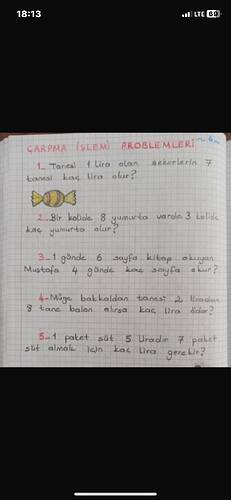 18:13
LTE 69
ÇARPMA İŞLEMİ PROBLEMLERİ
1_ Tanesi 1 lira olan şekerlerin 7
tanesi kaç lira olur?
2_ Bir kolide 8 yumurta vardır 3 kolide
kaç yumurta olur?
3_ 1 günde 6 sayfa kitap okuyan
Mustafa 4 günde kaç sayfa okur?
4_ Müge bakkaldan tanesi 2 liradan
8 tane balon alırsa kaç lira öder?
5_ 1 paket süt 5 liradır 7 paket
süt almak için kaç lira gerekir?